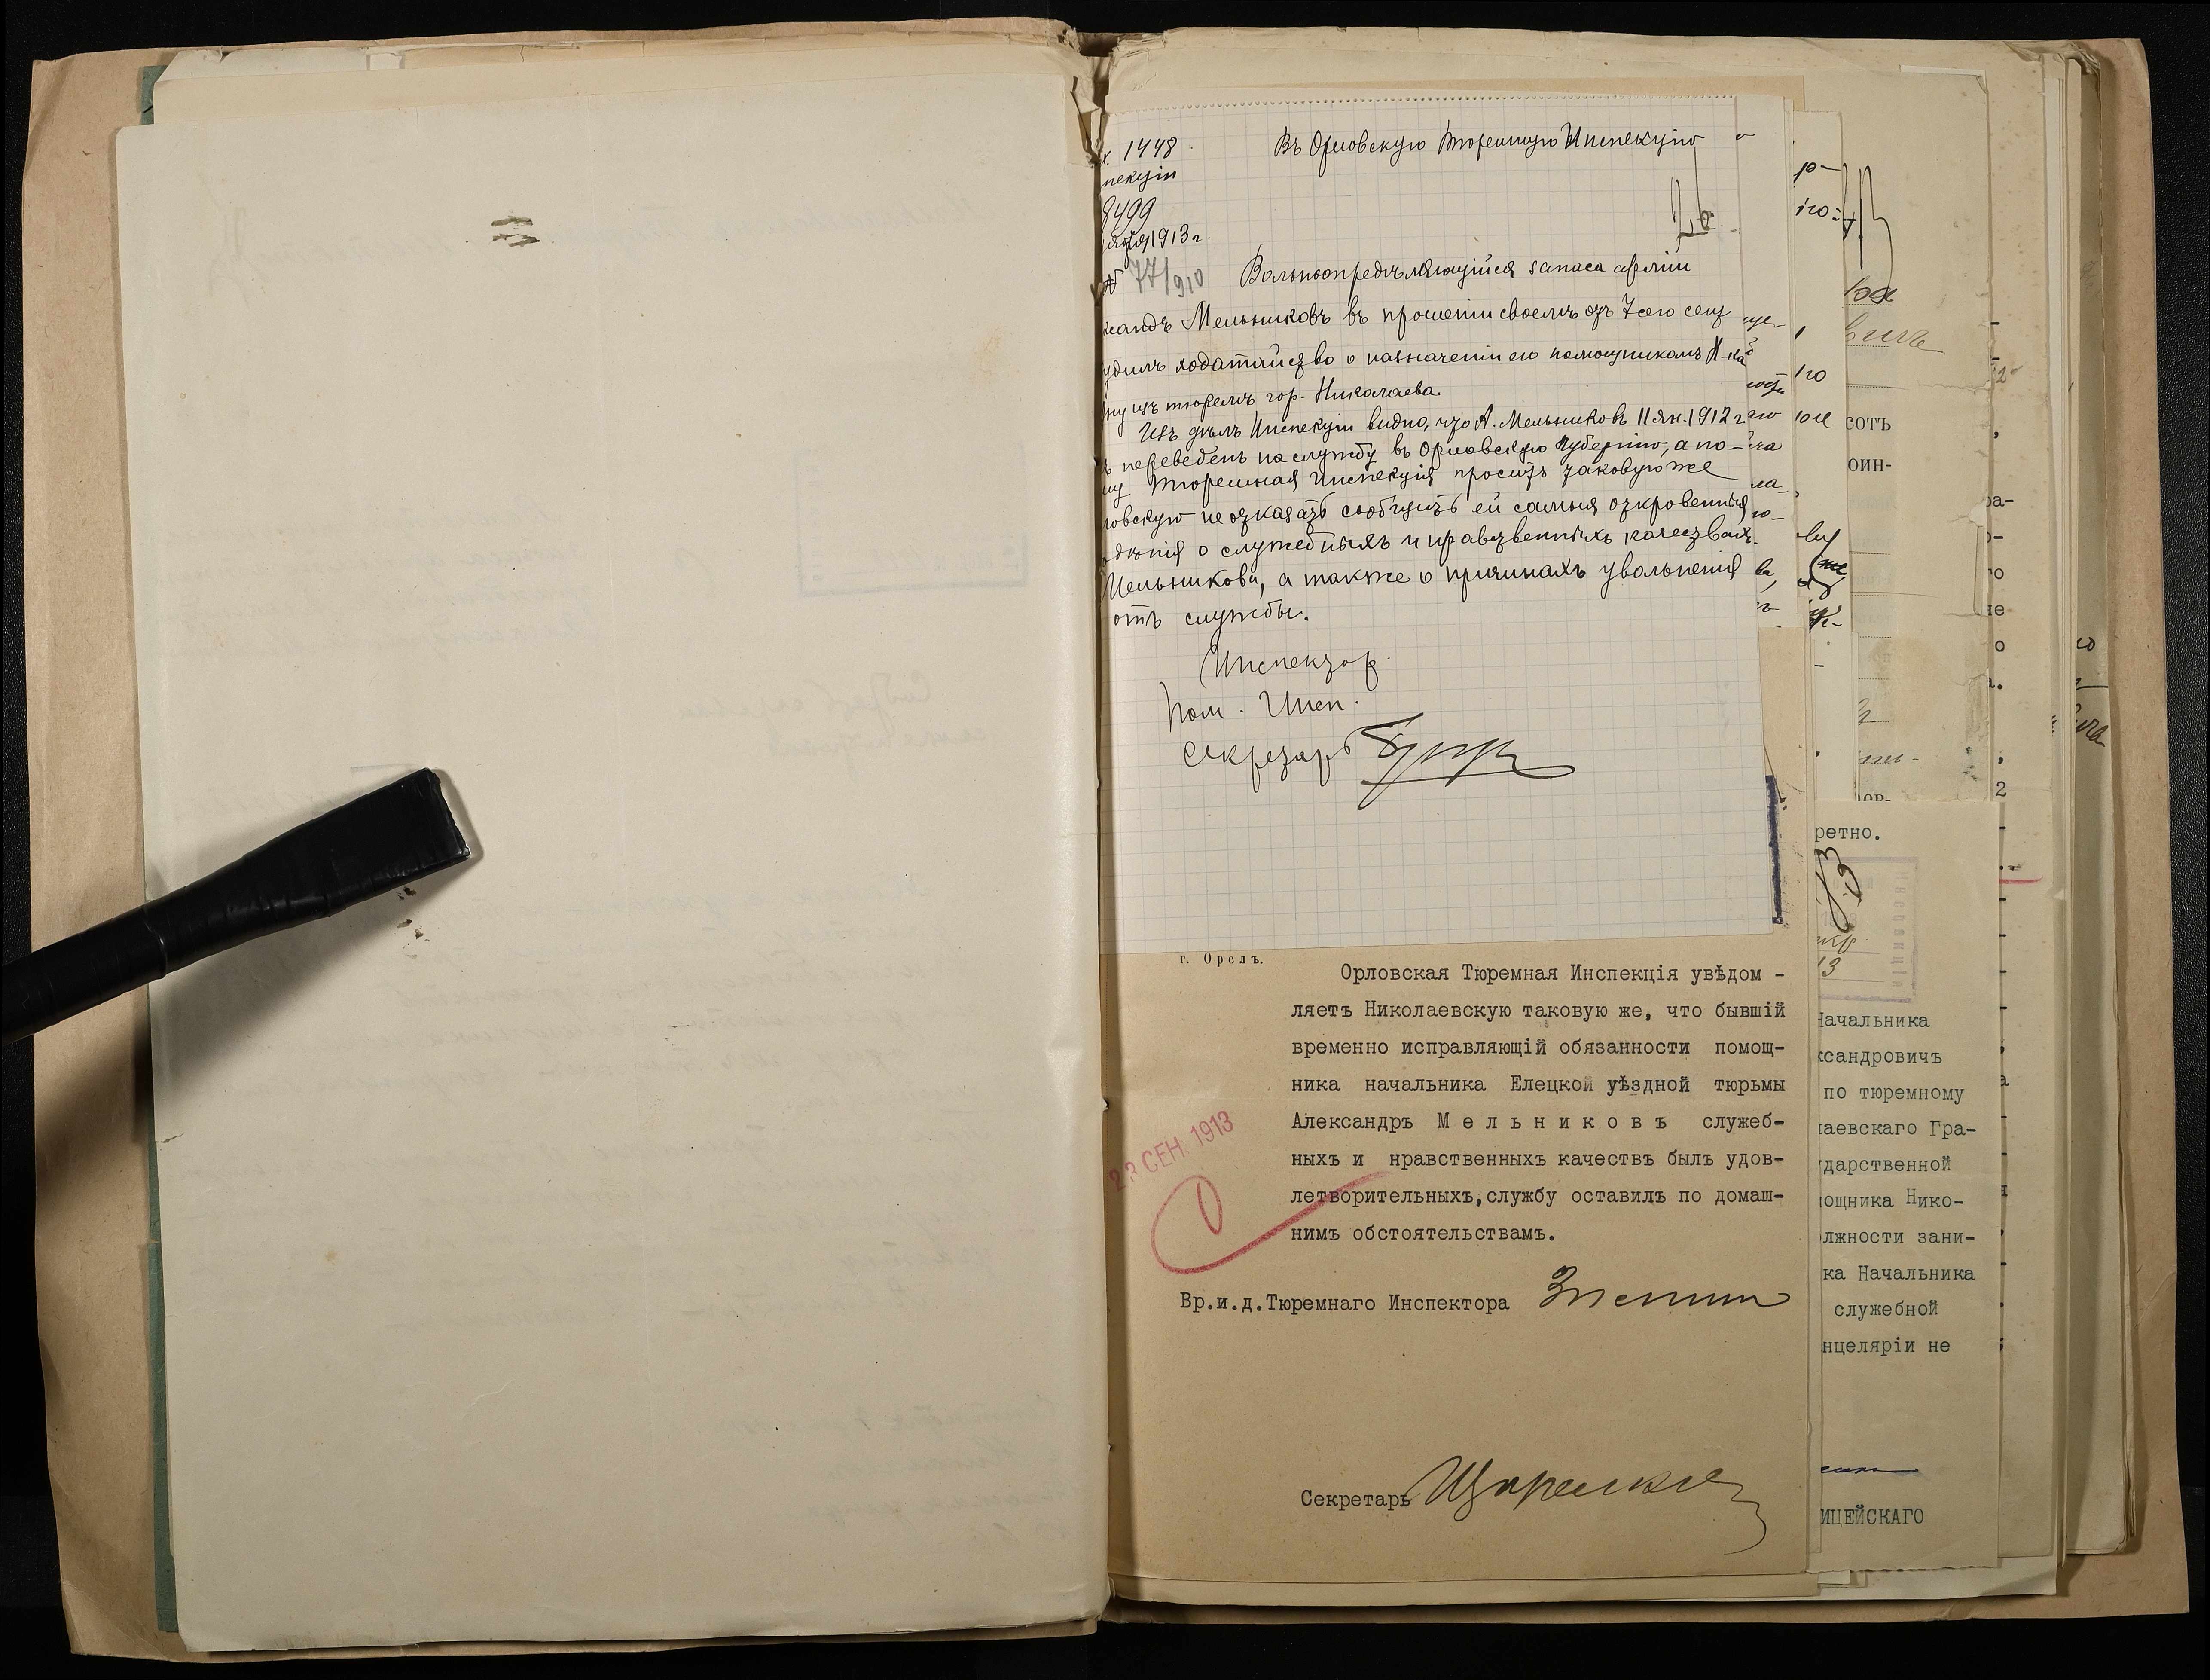 1448
Въ Орловскую Тюремную Инспекцію
пекціи
8499
1913 г.
26
№ 77/910
Вольноопредѣляющійся запаса арміи
ксандъ Мельниковъ въ прошеніи своемъ отъ 7 сего сент
удилъ ходатайство о назначеніи его помощникомъ Н-ка
ну изъ тюремъ гор. Николаева.
Изъ дѣлъ Инспекціи видно, что А. Мельниковъ 11 ян. 1912 г.
ъ переведенъ на службу въ Орловскую Губернію, а по-
му Тюремная Инспекція проситъ таковую же
ловскую не отказать сообщить ей самыя откровенныя
дѣнія о служебныхъ и нравственныхъ качествахъ
Мельникова, а также о причинахъ увольненія
отъ службы.
Инспекторъ
Пом. Инсп.
Секретарь
г. Орелъ.
Орловская Тюремная Инспекція увѣдом -
ляетъ Николаевскую таковую же, что бывшій
временно исправляющій обязанности помощ-
ника начальника Елецкой уѣздной тюрьмы
Александръ Мельниковъ служеб-
ныхъ и нравственныхъ качествъ былъ удов-
летворительныхъ,службу оставилъ по домаш-
нимъ обстоятельствамъ.
23 СЕН. 1913
Вр.и.д.Тюремнаго Инспектора
Секретарь
сотъ
оин-
ретно.
13
Начальника
ксандровичъ
по тюремному
лаевскаго Гра-
ударственной
ощника Нико-
лжности зани-
ка Начальника
служебной
нцеляріи не
ИЦЕЙСКАГО